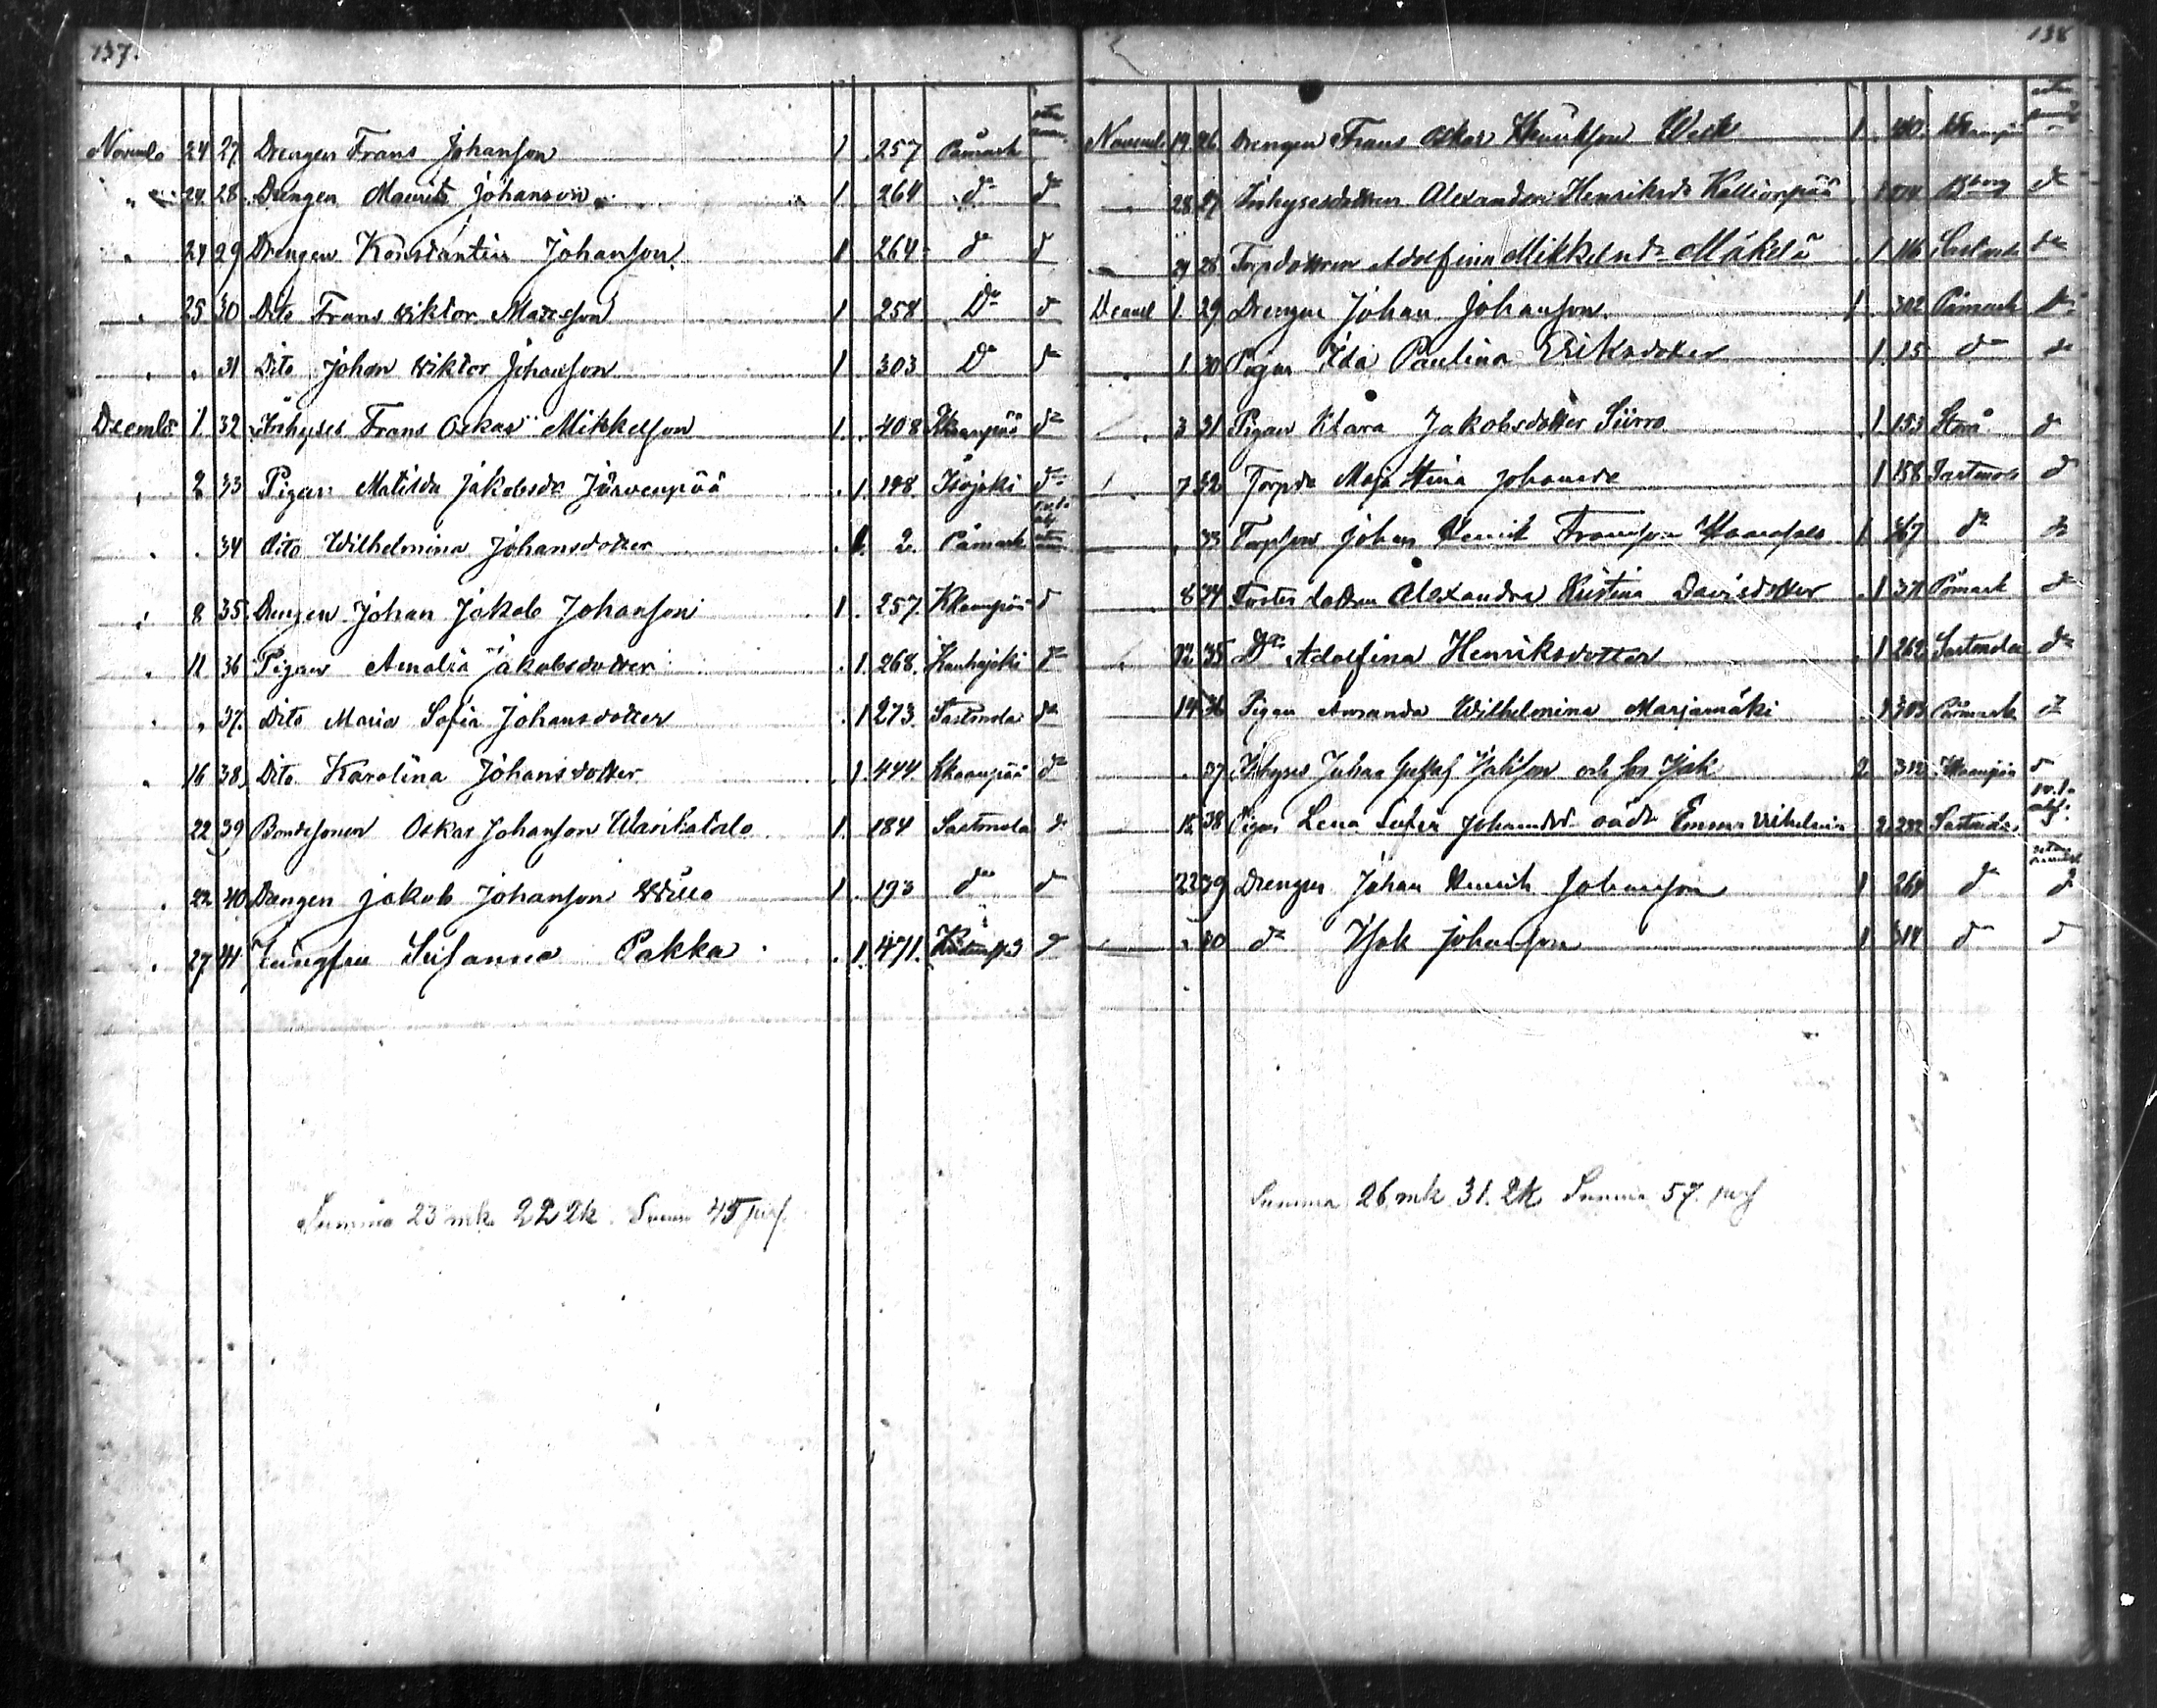 137.
Novemb 24 27 Drengen Frans Johansson 1 257 Påmark
" 24 28 Drengen Maurits Johansson 1 264 do do
" 24 29 Drengen Konstantin Johansson 1 264 do do
" 25 30 Dito Frans Wiktor Matsson 1 258 Do do
" " 31 Dito Johan Wiktor Johansson 1 303 Do do
Decemb 1 32 Inhyses Frans Oskar Mikkelsson 1 408 Kkaanpää do
" 2 33 Pigan Matilda Jakobsdr Järvenpää 1 148 Isojoki do
" " 34 dito Wilhelmina Johansdotter 1 2 Påmark
" 8 35 Drengen Johan Jakob Johansson 1 257 Kkanpää do
" 11 36 Pigan Amalia Jakobsdotter 1 268 Kauhajoki do
" " 37 Dito Maria Sofia Johansdotter 1 273 Sastmola do
" 16 38 Dito Karolina Johansdotter 1 444 Kkaanpää do
22 39 Bondesonen Oskar Johansson 1 184 Sastmola do
" 22 40 Drengen Jakob Johansson 1 193 do do
" 27 41 Jungfru Susanna Pakka 1 471 do
Summa 23 mk 22 2k Summa 45 pers.
138
Novemb 19 26 Drengen Frans Oskar Henriksson 1
28 27 Inhysesdottren Alexandra Henriksdr Kallionpää 1 Bborg do
28 Torpdottren Adolfina Mikkelsdr Mäkelä 1 116 Sastmola do
Decemb 1 29 Drengen Johan Johansson 1 302 Påmark do
" 1 30 Pigan Ida Paulina Eriksdotter 1 15 do do
" 3 31 Pigan Klara Jakobsdotter Siirro 1 153 Storå do
" 7 32 Torpdr Maja Stina Johansdr 1 158 Sastmola do
33 Torpson Johan Henrik Fransson 1 do do
8 34 Foster dottren Alexandra Kristina Davidsdotter 1 Påmark do
12 35 Do Adolfina Henriksdotter 1 262 Sastmola do
14 36 Pigan Amanda Wilhelmina Marjamäki 1 303 Påmark do
" 37 Inhyses Johan Gustaf Isaksson och son Isak 2 312 Kkaanpää do
15 38 Pigan Lena Sofia Johansdr o ä dr Emma Vilhelmina 2 232 Sastmola
22 39 Drengen Johan Henrik Johansson 1 264 do do
" 40 do Isak Johansson 1 314 do do
Summa 26 mk 31. 2k Summa 57. pers